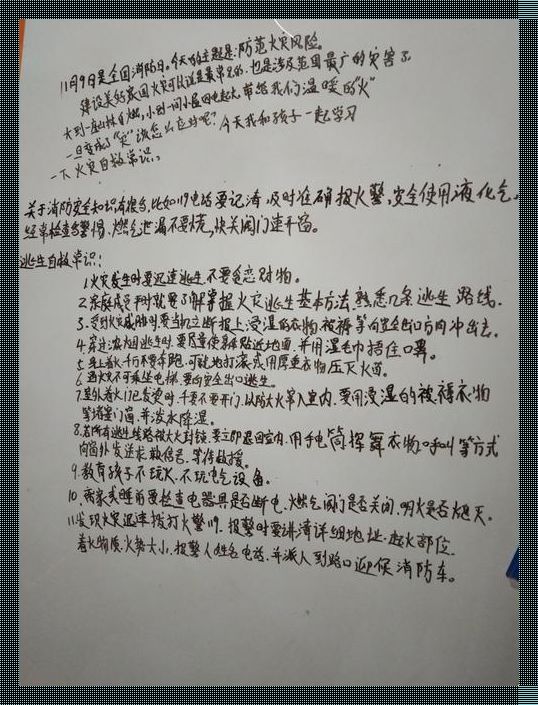 11月9日是全国消防日。今天的主题是:防范火灾风险。
建设美好家园火灾可以说是最常见的.也是涉及范围最广的灾害了.
大到一座山林自燃,小到一间小屋因电起火.带给我们温暖的"火"
一旦变成了"灾"该怎么应对呢?今天我和孩子一起学习
一下火灾自救常识。
关于消防安全知识有很多,比如119电话要记清,及时准确报火警,安全使用液化气,
经常检查多警惕.燃气泄漏不要慌,快关阀门速开窗。
逃生自救常识:
1.火灾发生时要迅速逃生.不要贪恋财物。
2.家庭成员平时就要了解掌握火灾逃生基本方法.熟悉几条逃生路线.
3.受到火灾威胁时要当机立断披上浸湿的衣物.被褥等向安全出口方向冲出去.
4.穿过浓烟逃生时要尽量使身体贴近地面.并用湿毛巾捂住口鼻。
5.身上着火千万不要奔跑.可就地打滚或用厚重衣物压灭火苗。
6.遇火灾不可乘坐电梯.要向安全出口逃生。
7.室外着火门已发烫时.千万不要开门.以防大火窜入室内.要用浸湿的被褥衣物
等堵塞门窗.并泼水降温。
8.若所有逃生线路被大火封锁.要立即退回室内.用手电筒挥舞衣物.呼叫等方式
向窗外发送求救信号.等待救援。
9.教育孩子不玩火.不玩电气设备。
10.离家或睡前要检查电器具是否断电.燃气阀门是否关闭.明火是否熄灭。
11.发现火灾迅速拨打火警119.报警时要讲清详细地址.起火部位.
着火物质.火势大小.报警人姓名电话.并派人到路口迎候消防车。